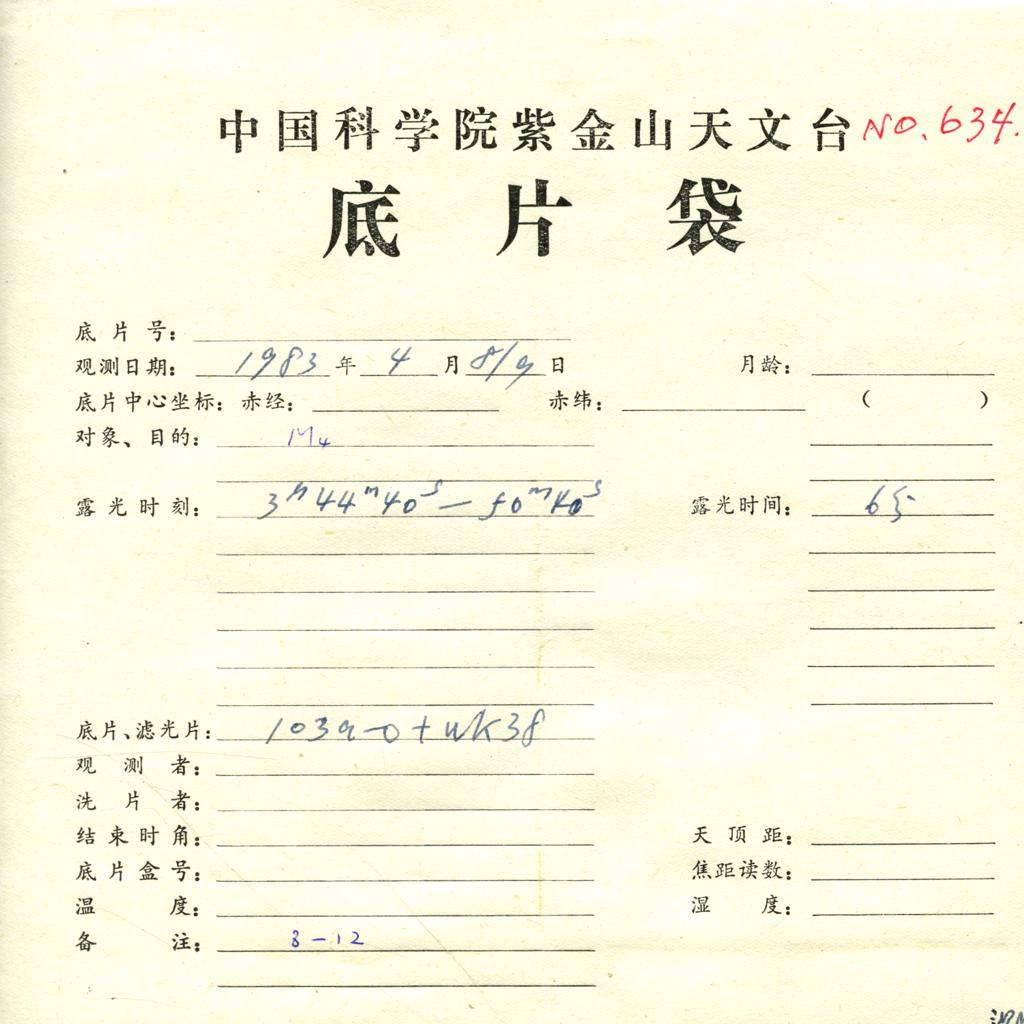 中国科学院紫金山天文台 NO.634.
底片袋
底片号：
观测日期： 1983 年 4 月 8/9 日 月龄：
底片中心坐标：赤经： 赤纬： （ ）
对象、目的： M4
露光时刻： 3h44m40s — 50m40s 露光时间： 6分
底片、滤光片： 103a-O+UK38
观测者：
洗片者：
结束时角： 天顶距：
底片盒号： 焦距读数：
温度： 湿度：
备注： 8-12